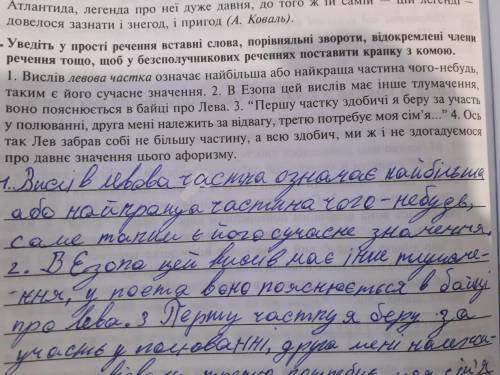 Атлантида, легенда про неї дуже давня, до того ж їй самій — цій легенді —
довелося зазнати і знегод, і пригод (А. Коваль).
Уведіть у прості речення вставні слова, порівняльні звороти, відокремлені члени
речення тощо, щоб у безсполучникових реченнях поставити крапку з комою.
1. Вислів левова частка означає найбільша або найкраща частина чого-небудь,
таким є його сучасне значення. 2. В Езопа цей вислів має інше тлумачення,
воно пояснюється в байці про Лева. 3. “Першу частку здобичі я беру за участь
у полюванні, друга мені належить за відвагу, третю потребує моя сім’я...” 4. Ось
так Лев забрав собі не більшу частину, а всю здобич, ми ж і не здогадуємося
про давнє значення цього афоризму.
1. Вислів левова частка означає найбільша
або найкраща частина чого-небудь,
саме таким є його сучасне значення.
2. В Езопа цей вислів має інше тлумаче-
-ння, у поета воно пояснюється в байці
про Лева. 3 Першу частку я беру за
участь у полюванні, друга мені належи-